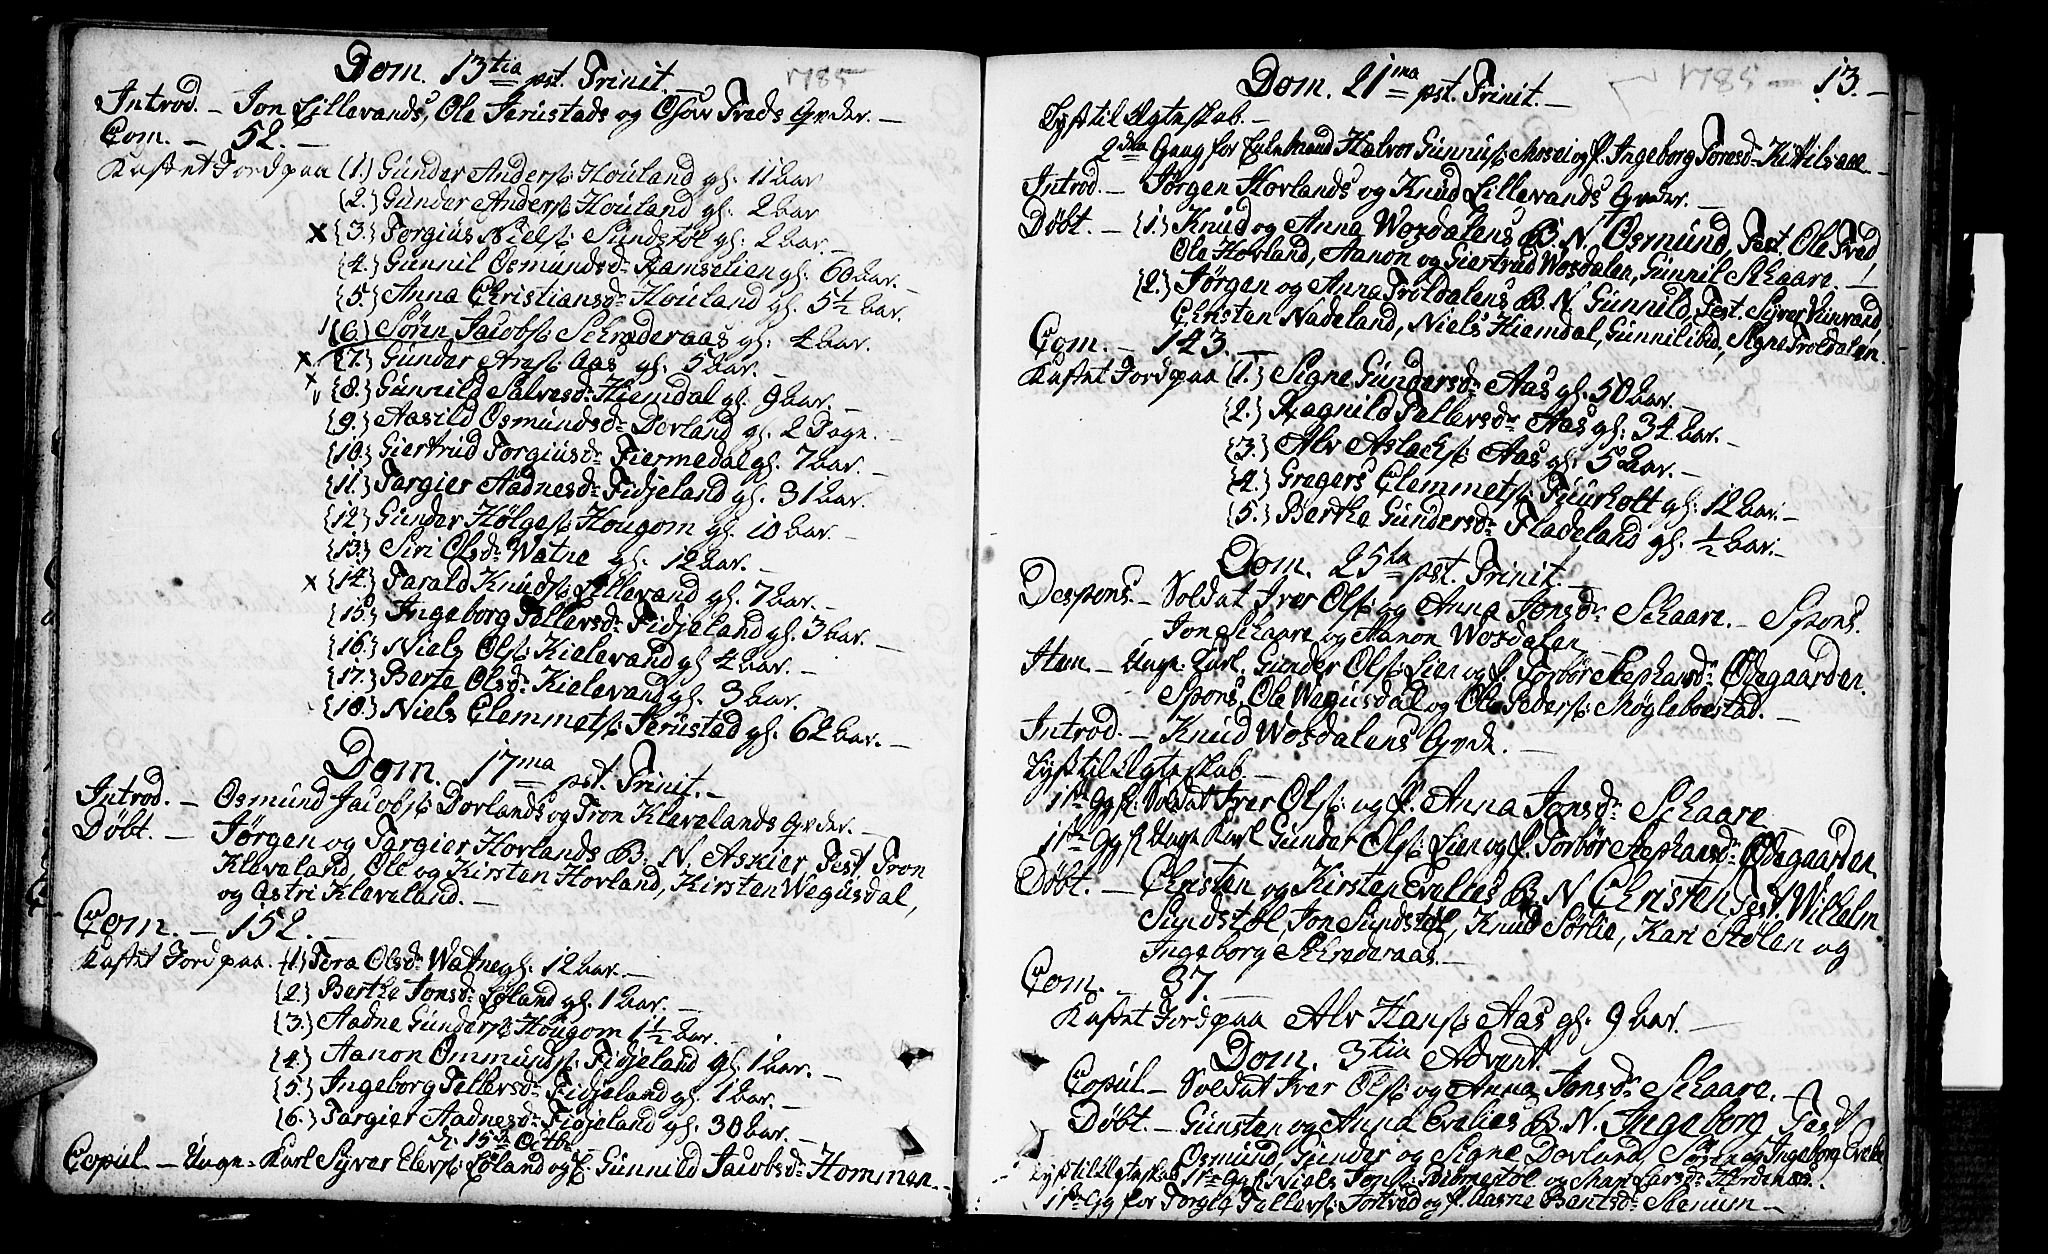 Dom. 13tia pst. Trinit. 1785
Introd. – Jon Lillevands, Ole Terustads og Osow Træds Qvder. –
Com. – 52. –
Kastet Jord paa (1.) Gunder Anders: Houland gl. 11 aar
(2.) Gunder Anders: Houland gl. 2 aar
x (3.) Torgius Niels: Sundstøl gl. 2 aar. –
(4.) Gunnil Osmundsdr Ramselien gl. 60 aar. –
(5.) Anna Christiansdr Houland gl. 5½ aar.
(6.) Søren Jacobs: Schræderaas gl. 4 aar.
x (7.) Gunder Ares: Aas gl. 5 aar. –
x (8.) Gunnild Salvesdr Hiemdal gl. 9 aar. –
(9.) Aasild Osmundsdr Dovland gl. 2 Dage. –
(10.) Giertrud Torgiusdr Fiermedal gl. 7 aar. –
(11.) Targier Aadnesdr Fidjeland gl. 31 aar.
(12.) Gunder Hølges: Hougom gl. 10 aar. –
(13.) Siri Olsdr Watne gl. 12 aar. –
x (14.) Tarald Knuds: Lillevand gl. 7 aar. –
(15.) Ingeborg Tellevsdr Fidjeland gl. 3 aar. –
(16.) Niels Ols: Kielevand gl. 4 aar. –
(17.) Berte Olsdr Kielevand gl. 3 aar. –
(18.) Niels Clemmets: Terustad gl. 62 aar. –
Dom. 17ma pst. Trinit. –
Introd. – Osmund Jacobs: Dovlands og Tron Klevelands Qvder. –
Døbt. – Jørgen og Targier Hovlands B. N. Askier Test. Tron
Kleveland, Ole og Kirsten Hovland, Kirsten Wegusdal,
og Astri Kleveland. –
Com. – 152. –
Kastet Jord paa (1.) Tora Olsdr Watne gl. 12 aar. –
(2.) Berthe Jonsdr Løland gl. 1 aar. –
(3.) Aadne Gunders: Hougom 1½ aar. –
(4.) Aanon Ommunds: Fidjeland gl. 1 aar. –
(5.) Ingeborg Tellevsdr Fidjeland gl. 1 aar. –
(6.) Targier Aadnesdr Fidjeland gl. 30 aar. –
d. 15de Octbr
Copul. – Unge-Karl Syver Elevs: Løland og P. Gunnild Jacobsdr Hommen. –
Dom. 21ma pst. Trinit. – 1785 – 13. –
Lyst til Ægteskab. –
2den Gang for Enkemand Halvor Gunnus: Mosei og P. Ingeborg Toresdr Kittilsaae. –
Introd. – Jørgen Hovlands og Knud Lillevands Qvder. –
Døbt. – (1.) Knud og Anna Wosdalens B. N. Osmund, Test. Ole Træd,
Ole Hovland, Aanon og Giertrud Wosdalen, Gunnil Schaare. –
(2.) Jørgen og Anna Troldalens B. N. Gunnild, Test. Syver Hunvand,
Christen Nadeland, Niels Hiemdal, Gunnil ibid., Signe Troldalen.
Com. – 143. –
Kastet Jord paa (1.) Signe Gundersdr Aas gl. 50 aar. –
(2.) Ragnild Tellevsdr Aas gl. 34 aar. –
(3.) Alv Aslachs: Aas gl. 5 aar. –
(4.) Gregers Clemmets: Fuurholt gl. 12 aar. –
(5.) Berthe Gundersdr Fladeland gl. ½ aar. –
Dom. 25ta pst. Trinit. –
Despons. – Soldat Iver Ols: og Anna Jonsdr Schaare. – Spons.
Jon Schaare og Aanon Wosdalen –
Item – Unge-Karl Gunder Ols: Lien og P. Torbør Stephansdr Ødegaarden.
Spons. Ole Wegusdal og Ole Peders: Møglebøestad. –
Introd. – Knud Wosdalens Qvde. –
Lyst til Ægteskab. –
1ste Gg f. Soldat Iver Ols: og P. Anna Jonsdr Schaare
1ste Gg f. Unge Karl Gunder Ols: Lien og P. Torbør Stephansdr Ødegaarden.
Døbt. – Christen og Kirsten Evelies B. N. Christen Test. Wilhelm
Sundstøl, Jon Sundstøl, Knud Sørlie, Kari Stølen og
Ingeborg Schræderaas. –
Com. – 37. –
Kastet Jord paa Alv Hans: Aas gl. 9 aar. –
Dom. 3tia Advent.
Copul. – Soldat Iver Ols: og Anna Jonsdr Schaare. –
Døbt. – Gunsten og Anna Evelies B. N. Ingeborg Test
Osmund, Gunder og Signe Dovland, Søren og Ingeborg Evelie
Lyst til Ægteskab 1ste Gg f. Niels Jons: Biømestøl og Mari Larsdr Herdenæs.
1ste Gg for Torgls Tellevs: Tortved og P. Aasne Bentsdr Stenum –